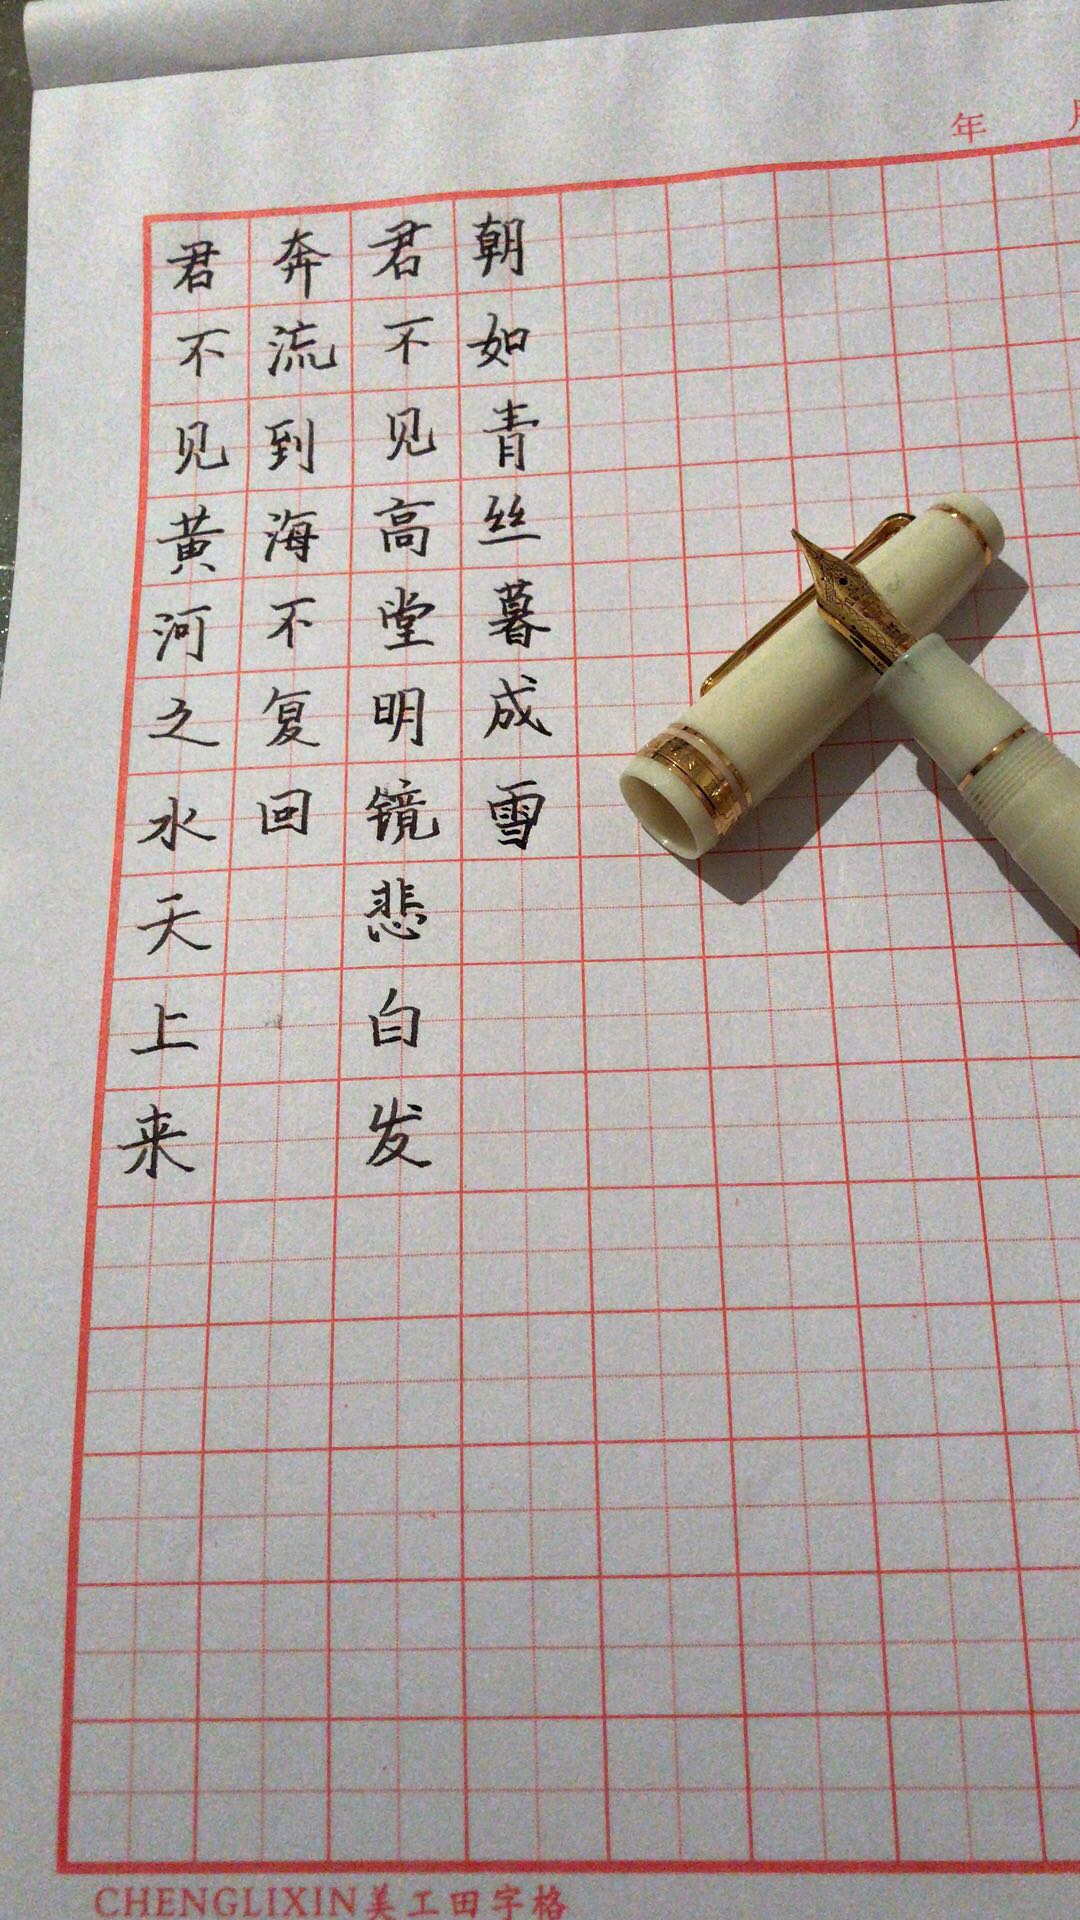 年 月
君不见黄河之水天上来
奔流到海不复回
君不见高堂明镜悲白发
朝如青丝暮成雪
CHENGLIXIN美工田字格